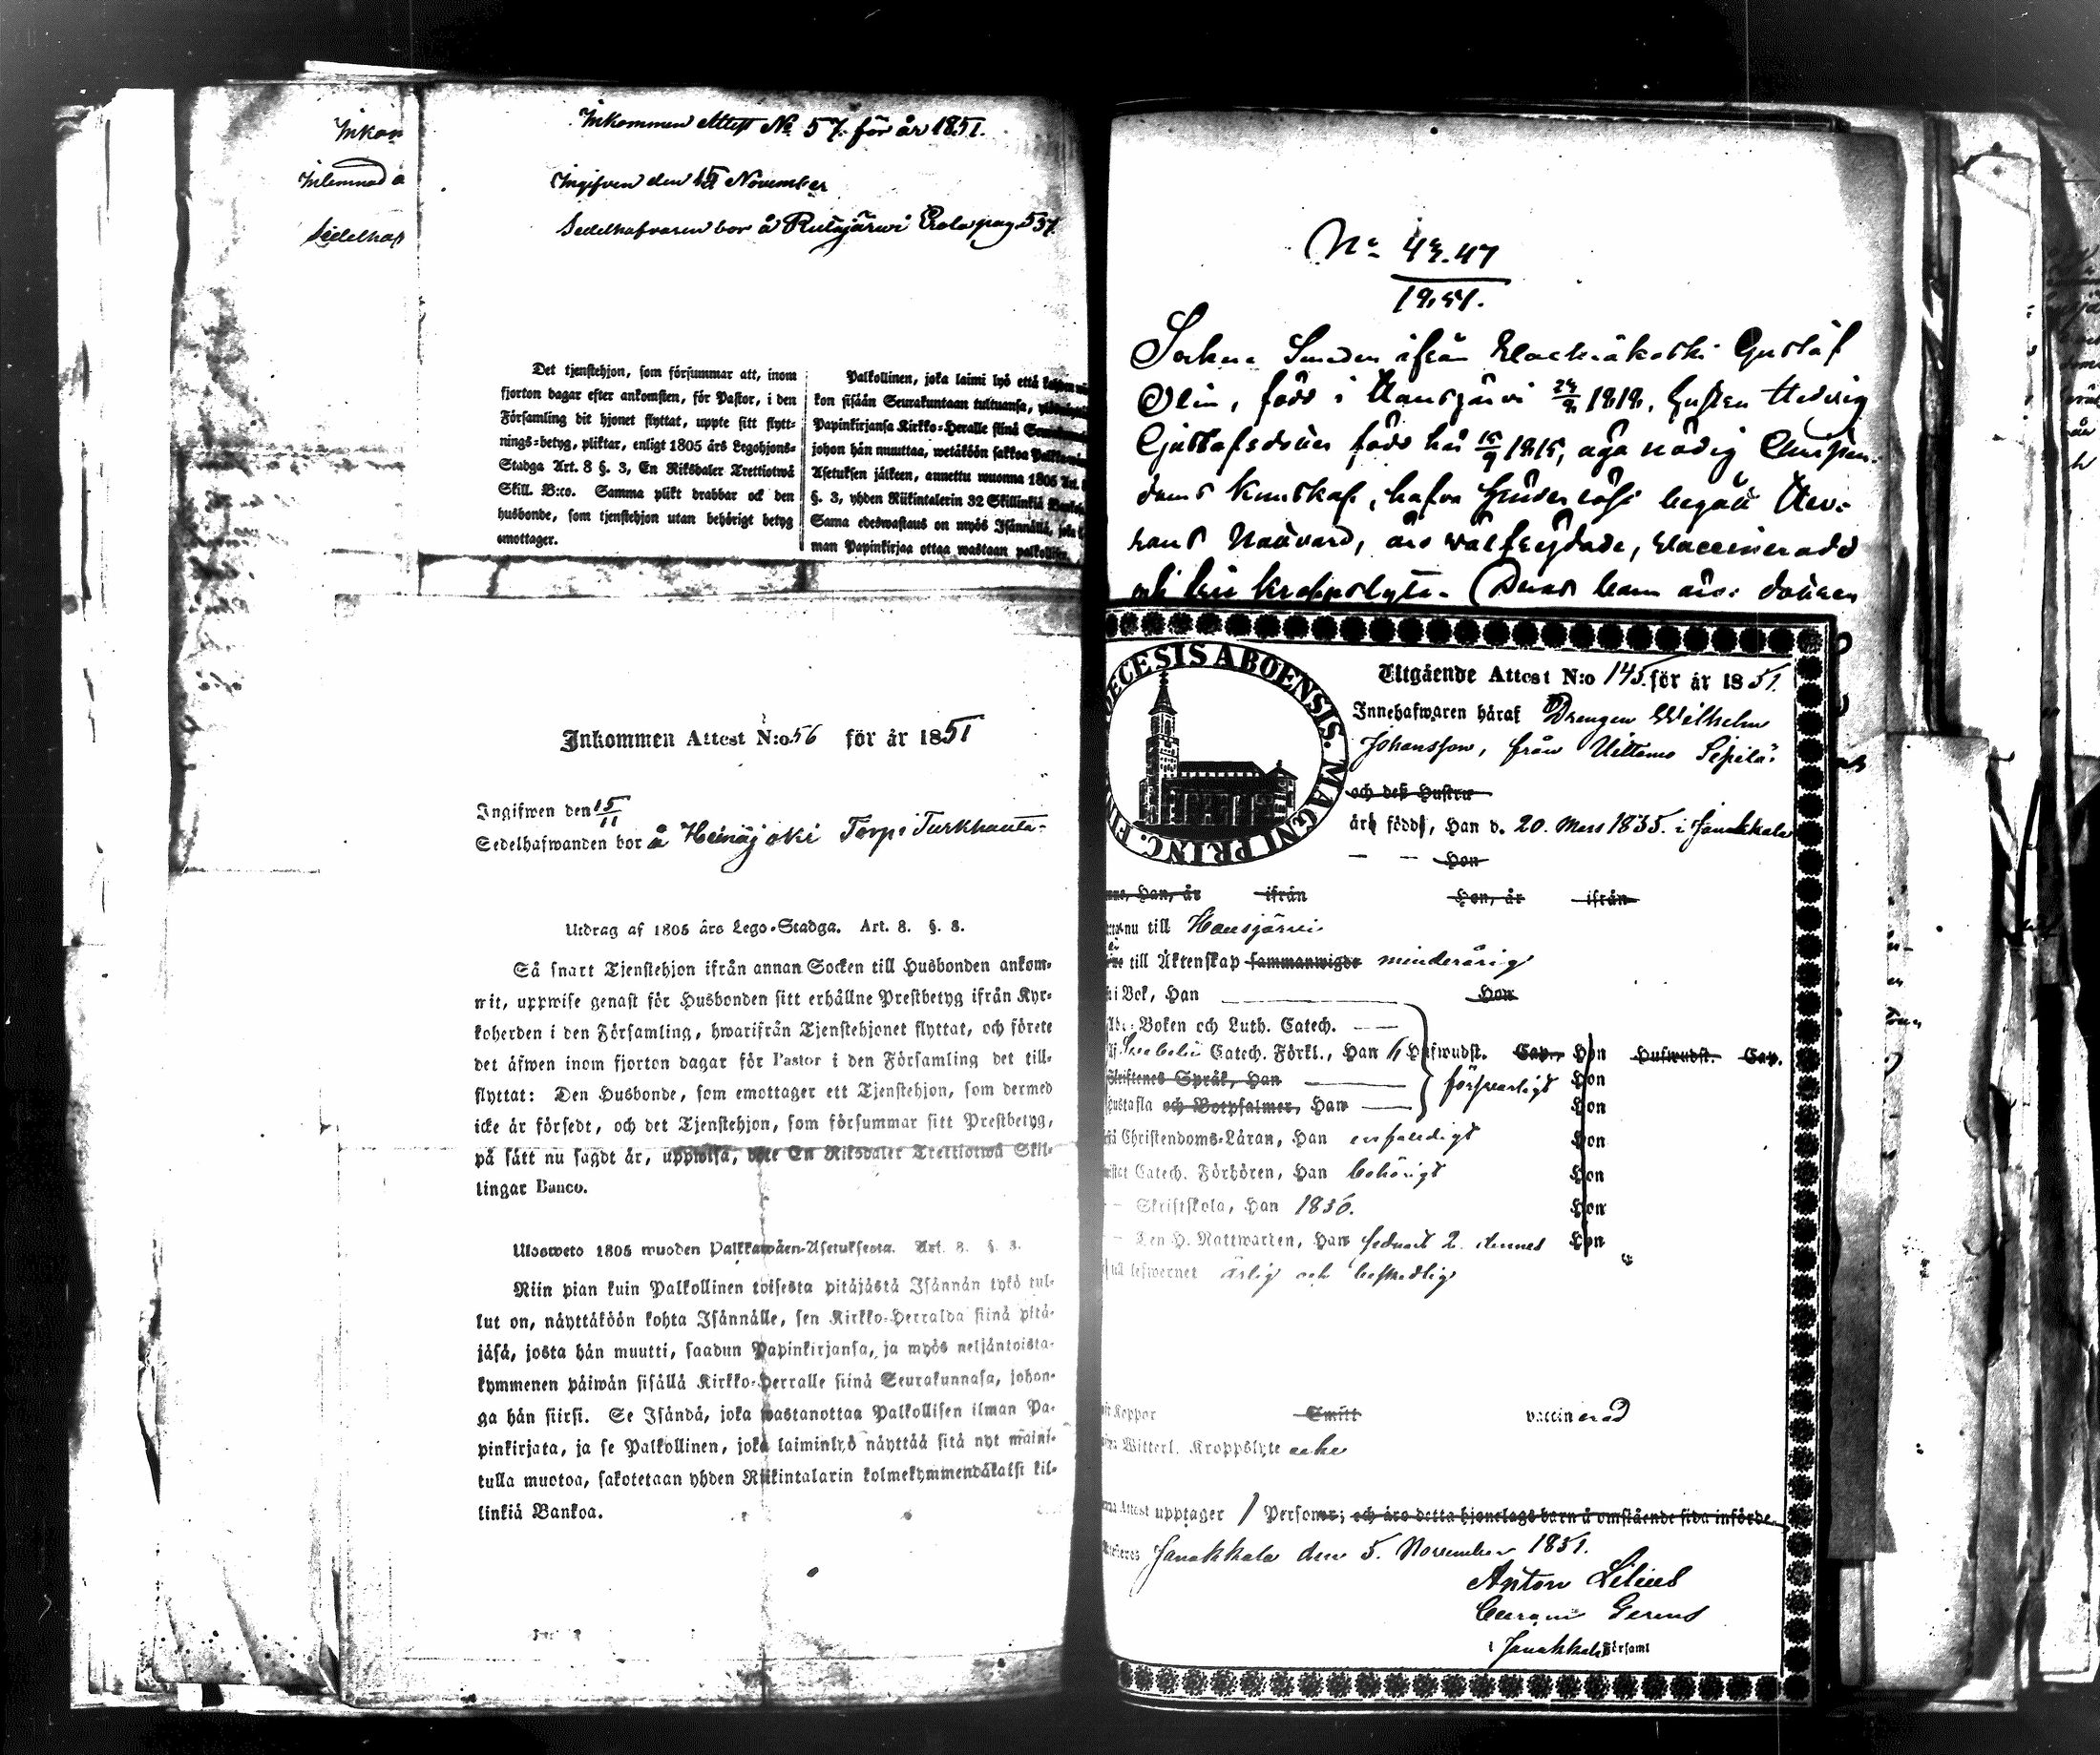 Inkom
Inlemnad a
Sedelhaf
Inkommen Attest No 57. för år 1851.
Ingifven den 15 November
Sedelhafvaren bor å Rutajärwi Erola pag. 537.
Det tjenstehjon, som försummar att, inom
fjorton dagar efter ankomsten, för Pastor, i den
Församling dit hjonet flyttat, uppte sitt flytt-
nings-betyg, pliktar, enligt 1805 års Legohjons-
Stadga Art. 8 §. 3, En Riksdaler Trettiotwå
Skill. B:co. Samma plikt drabbar ock den
husbonde, som tjenstehjon utan behörigt betyg
emottager.
Palkollinen, joka laimi lyö että
kon sisään Seurakuntaan tultuansa,
Papinkirjansa Kirkko-Herralle siinä
johon hän muuttaa, wetäköön sakkoa
Asetuksen jälkeen, annettu wuonna 1805 Art.
§. 3, yhden Riikintalerin 32 Skillinkiä
Sama edeswastaus on myös Isännällä,
man Papinkirjaa ottaa wastaan palkollisen.
Inkommen Attest N:o 56 för år 1851
Ingifwen den 15/11
Sedelhafwanden bor å Heinäjoki Torp: Turkhauta.
Utdrag af 1805 års Lego-Stadga. Art. 8. §. 3.
Så snart Tjenstehjon ifrån annan Socken till Husbonden ankom-
mit, uppwise genast för Husbonden sitt erhållne Prestbetyg ifrån Kyr-
koherden i den Församling, hwarifrån Tjenstehjonet flyttat, och förete
det äfwen inom fjorton dagar för Pastor i den Församling det till-
flyttat: Den Husbonde, som emottager ett Tjenstehjon, som dermed
icke är försedt, och det Tjenstehjon, som försummar sitt Prestbetyg,
på sätt nu sagdt är, uppwisa, böte En Riksdaler Trettiotwå Skil-
lingar Banco.
Ulosweto 1805 wuoden Palkkawäen-Asetuksesta. Art. 8. §. 3.
Niin pian kuin Palkollinen toisesta pitäjästä Isännän tykö tul-
lut on, näyttäköön kohta Isännälle, sen Kirkko-Herralda siinä pitä-
jäsä, josta hän muutti, saadun Papinkirjansa, ja myös neljäntoista-
kymmenen päiwän sisällä Kirkko-Herralle siinä Seurakunnasa, johon-
ga hän siirsi. Se Isändä, joka wastanottaa Palkollisen ilman Pa-
pinkirjata, ja se Palkollinen, joka laiminlyö näyttää sitä nyt maini-
tulla muotoa, sakotetaan yhden Riikintalarin kolmekymmendäkaksi kil-
linkiä Bankoa.
No 43.47
1851.
Sockne Smeden ifrån Gustaf
Olin, född i Hausjärvi 1818, hustrun Hedvig
Gustafsdoter född här 1815, äga nödig Christen-
doms kunskap, hafva begått Her-
rans Nattvard, äro välfrejdade, vaccinerade
och kroppslyte. Deras barn äro: dottren
DIOECESIS ABOENSIS. MAGNI PRINC. FIN
Utgående Attest N:o 145 för år 1851.
Innehafwaren häraf Drengen Wilhelm
Johansson, från Uittamo Sepilä
och dess Hustru
är född, Han d. 20. Mars 1835. i Janakkala
Hon
Han, är ifrån Hon, är ifrån
nu till Hausjärvi
till Äktenskap sammanwigde minderårig
i Bok, Han Hon
Boken och Luth. Catech.
Svebelii Catech. Förkl., Han 4 Hufwudst. Cap., Hon Hufwudst. Cap.
Skriftenes Språk, Han försvarligt Hon
Hustafla och Botpsalmer, Han Hon
Christendoms-Läran, Han enfaldigt Hon
Catech. Förhören, Han behörigt Hon
Skriftskola, Han 1850. Hon
Den H. Nattwarden, Han sednast 2. dennes Hon
till lefwernet ärlig och beskedlig
Koppor Smitt vaccinerad
Witterl. Kroppslyte icke
Attest upptager 1 Personer; och äro detta hjonelags barn å omstående sida införde.
Janakkala den 5. November 1851.
Anton Lilius
Curam Gerens
i Janakkala Församl